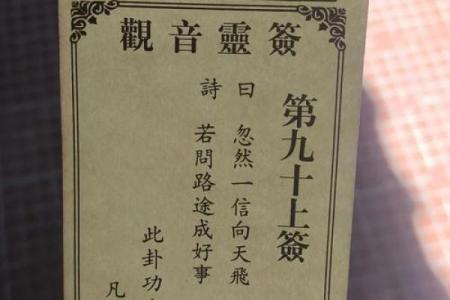 觀音靈簽
第九十上簽
詩曰
忽然一信向天飛
若問路途成好事
此卦功
凡